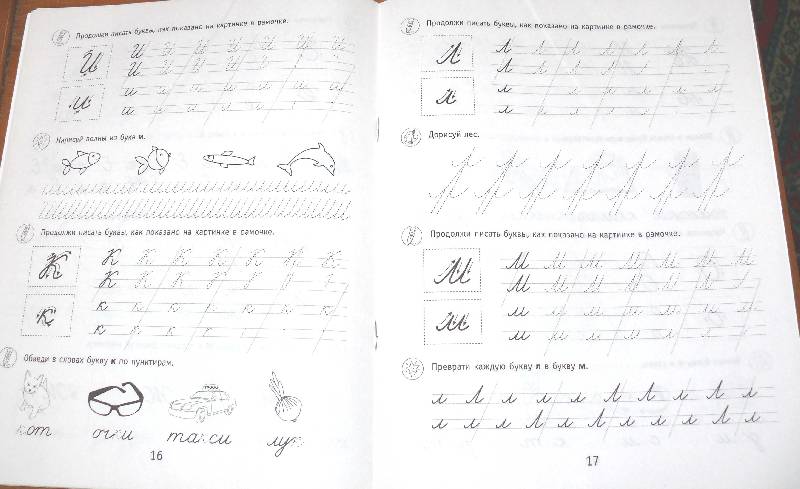 Продолжи писать буквы, как показано на картинке в рамочке.
И И И И И И И И
И И И И И
и и и и и и и и
и и и и и
Напиши волны из букв и.
Продолжи писать буквы, как показано на картинке в рамочке.
К К К К К К К К
К К К К
к к к к к к к к
к к к к
Обведи в словах букву к по пунктирам.
кот очки такси лук
16
Продолжи писать буквы, как показано на картинке в рамочке.
Л Л Л Л Л Л Л Л
Л Л Л Л Л
л л л л л л л л
л л л л л
Дорисуй лес.
Продолжи писать буквы, как показано на картинке в рамочке.
М М М М М М М М
М М М М М
м м м м м м м м
м м м м м
Преврати каждую букву л в букву м.
л Л л л л Л Л Л Л л
л л л Л Л л Л Л Л л
17